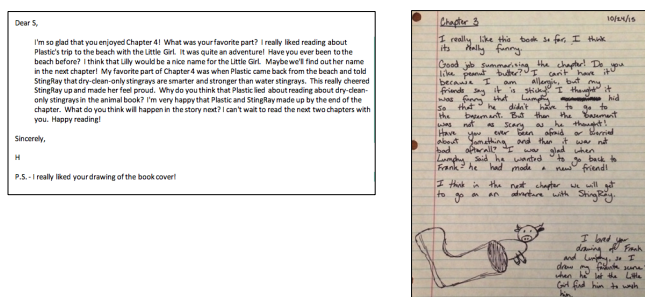 Dear S,
I'm so glad that you enjoyed Chapter 4! What was your favorite part? I really liked reading about
Plastic's trip to the beach with the Little Girl. It was quite an adventure! Have you ever been to the
beach before? I think that Lilly would be a nice name for the Little Girl. Maybe we'll find out her name
in the next chapter! My favorite part of Chapter 4 was when Plastic came back from the beach and told
StingRay that dry-clean-only stingrays are smarter and stronger than water stingrays. This really cheered
StingRay up and made her feel proud. Why do you think that Plastic lied about reading about dry-clean-
only stingrays in the animal book? I'm very happy that Plastic and StingRay made up by the end of the
chapter. What do you think will happen in the story next? I can't wait to read the next two chapters with
you. Happy reading!
Sincerely,
H
P.S. - I really liked your drawing of the book cover!
Chapter 3 10/24/15
I really like this book so far, I think
its really funny.
Good job summarising the chapter! Do you
like peanut butter? I can't have it
because I am allergic, but my
friends say it is sticky. I thought it
was funny that Lumphy hid
so that he didn't have to go to
the basement. But then the basement
was not as scary as he thought!
Have you ever been afraid or worried
about something and then it was not
bad afterall? I was glad when
Lumphy said he wanted to go back to
Frank - he had made a new friend!
I think in the next chapter we will get
to go on an adventure with StingRay.
I loved your
drawing of Frank
and Lumphy, so I
drew my favorite scene
when he let the Little
Girl find him to wash
him